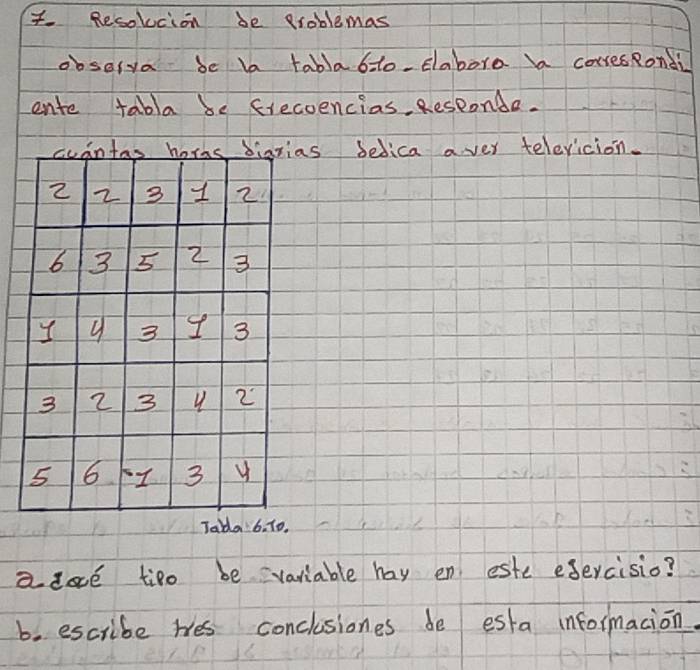 7. Resolución de problemas
observa de la tabla 6.10. Elabora la correspondi
ente tabla de frecuencias. Responde.
cuántas horas diarias dedica a ver televicion.
2 2 3 1 2
6 3 5 2 3
1 4 3 1 3
3 2 3 4 2
5 6 1 3 4
Tabla 6.10.
a. qué tipo de variable hay en este ejercisio?
b. escribe tres conclusiones de esta información.